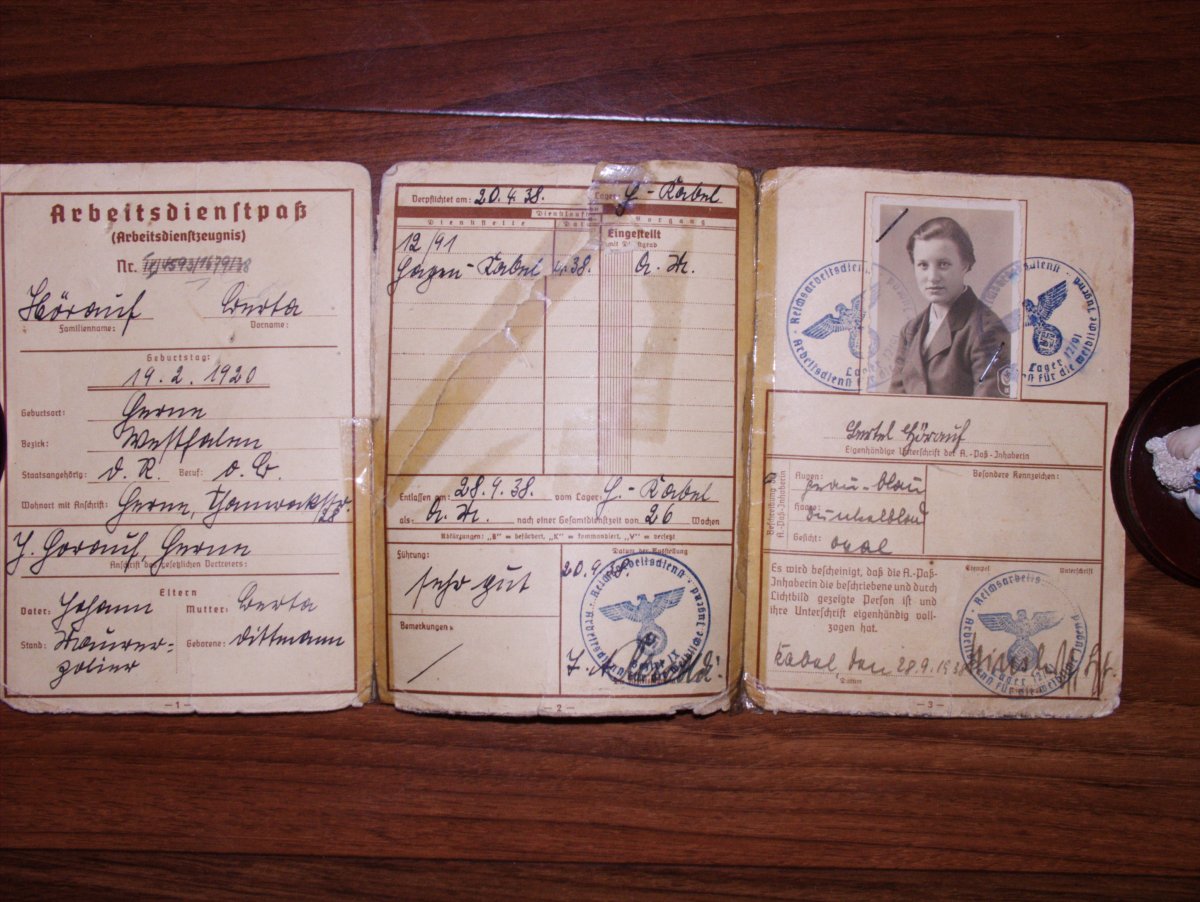 Arbeitsdienstpaß
(Arbeitsdienstzeugnis)
Nr.
Hörauf Berta
Familienname: Vorname:
Geburtstag:
19. 2. 1920
Geburtsort: Herne
Bezirk: Westfalen
Staatsangehörig: d. R. Beruf: o. B.
Wohnort mit Anschrift: Herne,
J. Hörauf, Herne
Anschrift des gesetzlichen Vertreters:
Eltern
Vater: Johann Mutter: Berta
Stand: Maurer- Geborene: Dittmann
polier
— 1 —
Verpflichtet am: 20. 4. 38. Lager: H.-Kabel
Dienstlaufbahn
Dienststelle Datum Vorgang
Eingestellt
12/91
Hagen-Kabel 4. 38. A. M.
Entlassen am: 28. 9. 38. vom Lager: H.-Kabel
als: A. M. nach einer Gesamtdienstzeit von 26 Wochen
Abkürzungen: „B“ = befördert, „K“ = kommandiert, „V“ = versetzt
Führung: Datum der Ausstellung
sehr gut
Reichsarbeitsdienst
Arbeitsdienst für die weibliche Jugend
Bezirk IX
Bemerkungen:
— 2 —
Reichsarbeitsdienst
Arbeitsdienst für die weibliche Jugend
Lager 12/91
Bertel Hörauf
Eigenhändige Unterschrift der A.-Paß-Inhaberin
Beschreibung der A.-Paß-Inhaberin
Augen: grau-blau
Haare: dunkelblond
Gesicht: oval
Besondere Kennzeichen:
Es wird bescheinigt, daß die A.-Paß-
Inhaberin die beschriebene und durch
Lichtbild gezeigte Person ist und
ihre Unterschrift eigenhändig voll-
zogen hat.
Stempel Unterschrift
Reichsarbeitsdienst
Arbeitsdienst für die weibliche Jugend
Lager 12/91
Kabel, den 28. 9. 1938
Datum
— 3 —